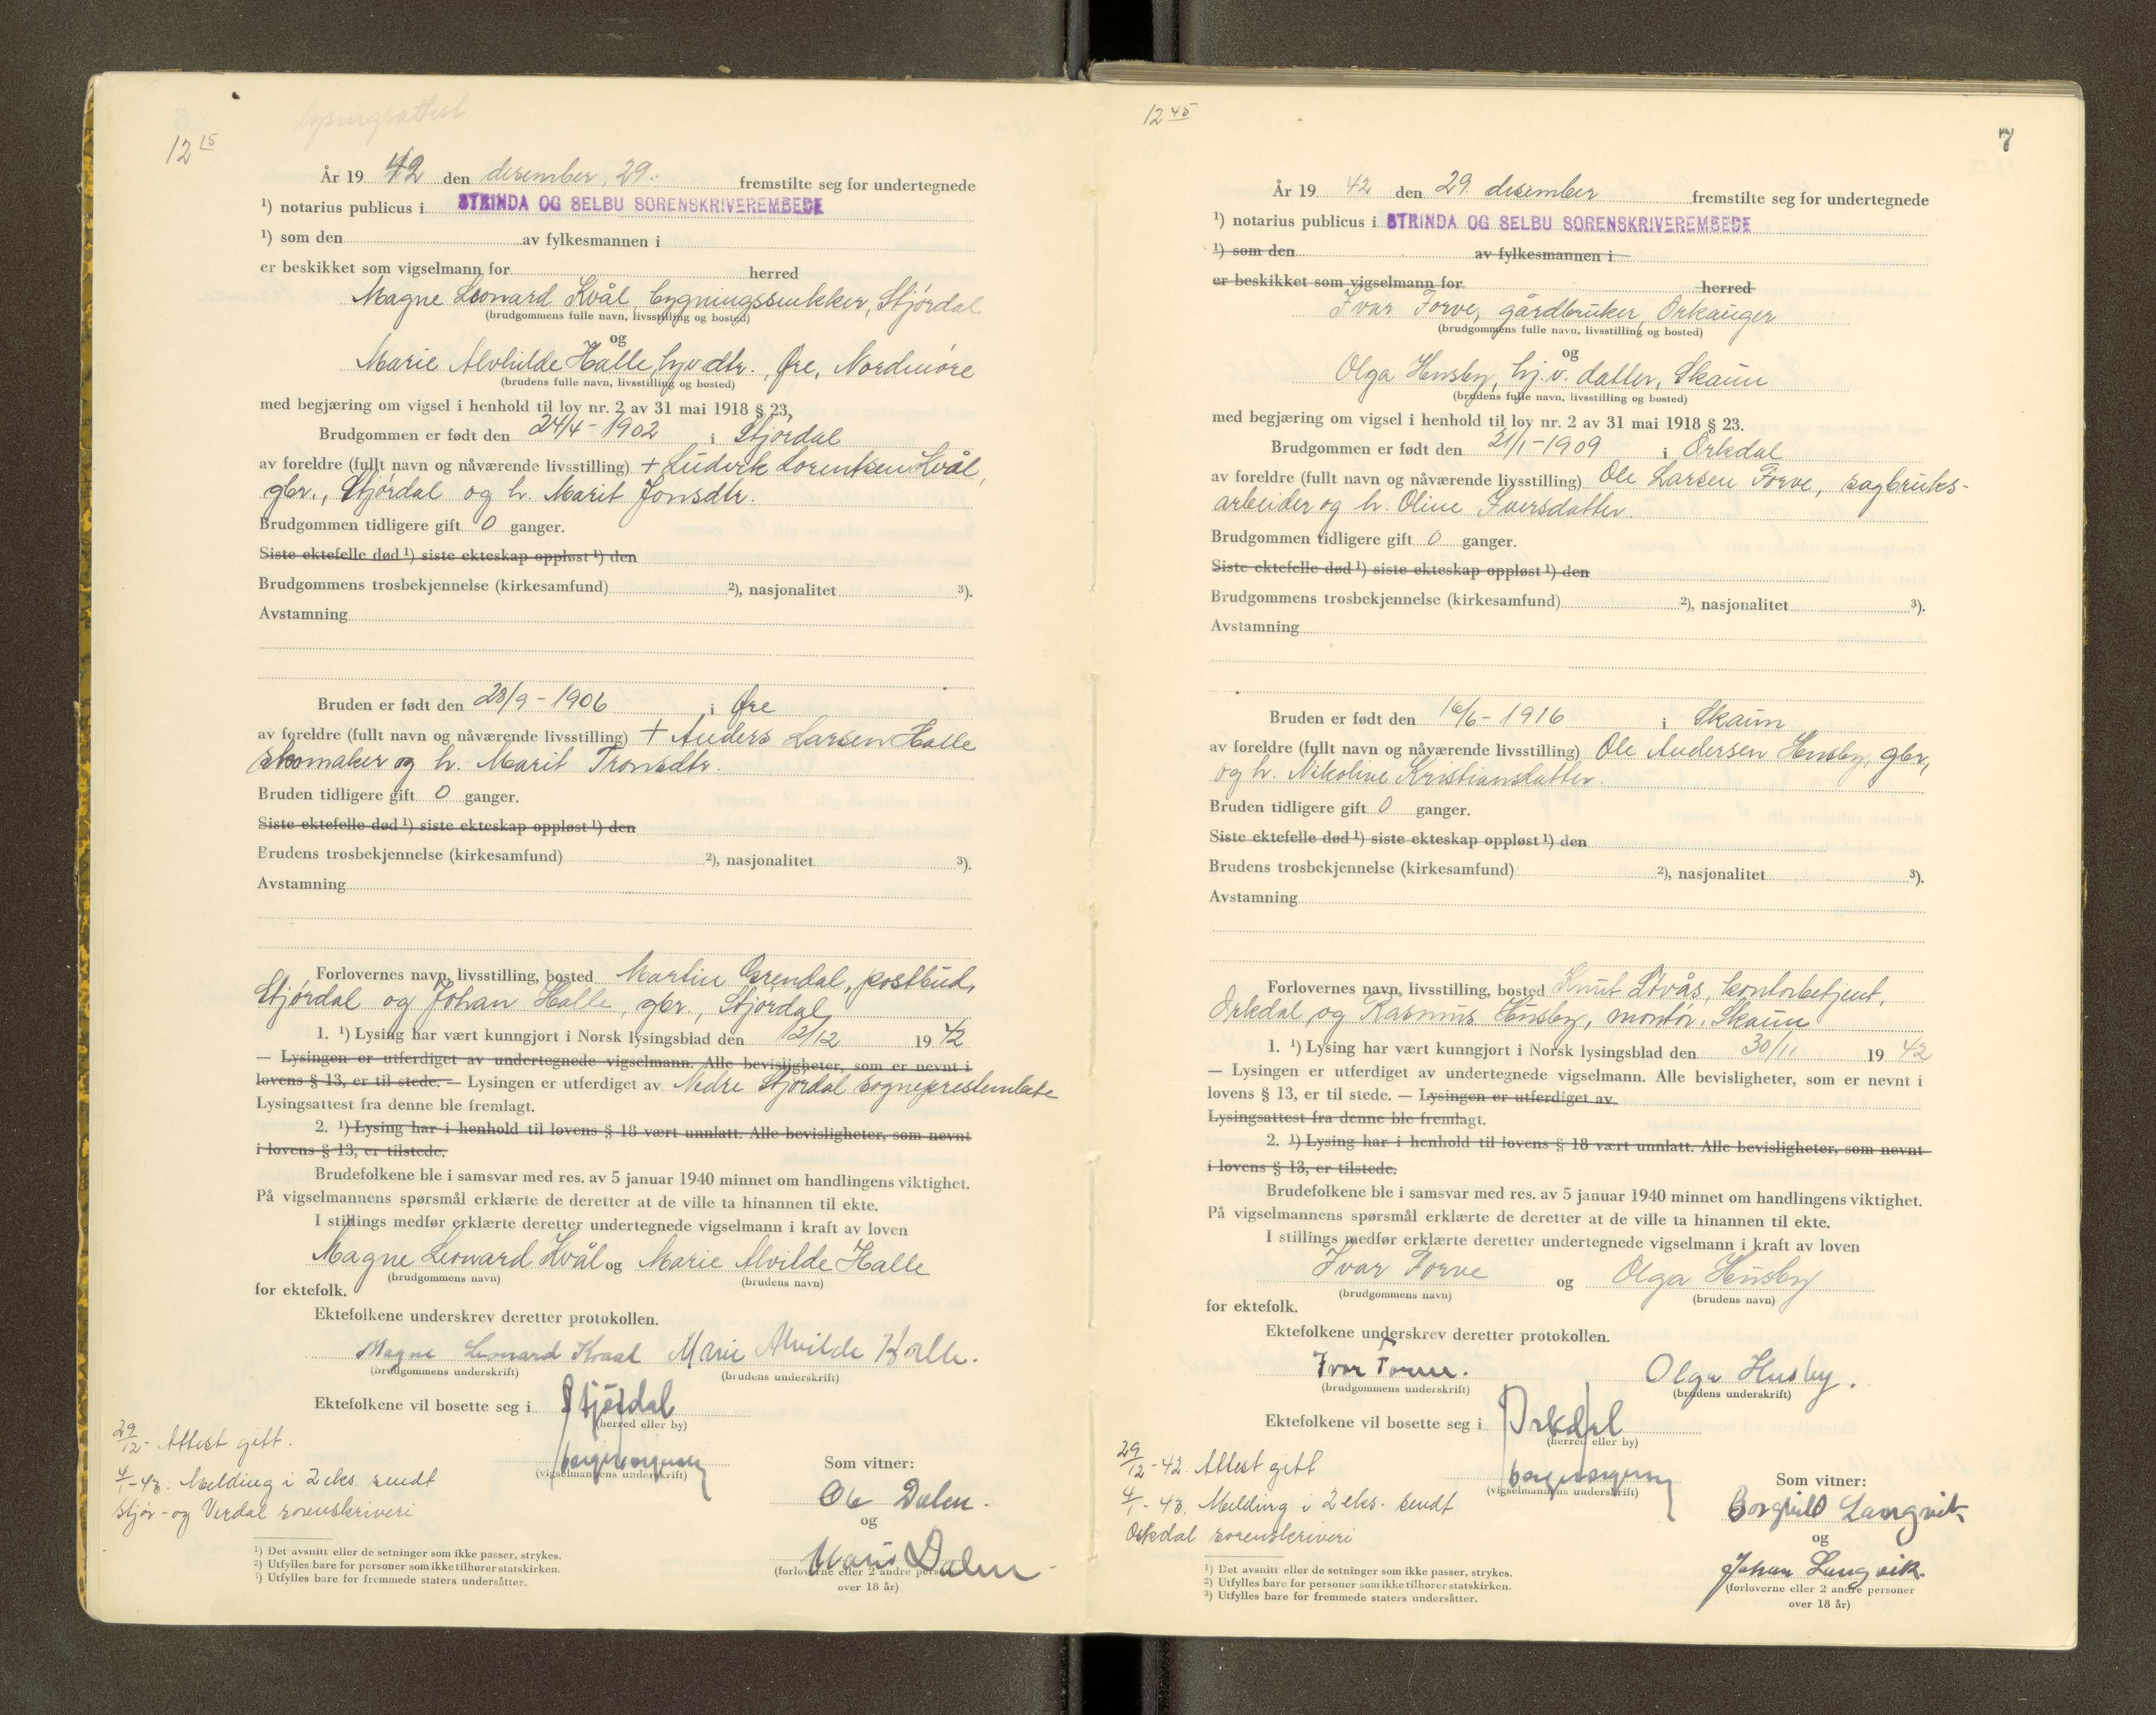 lysingsattest
12 15
År 19 42 den desember, 29. fremstilte seg for undertegnede
¹) notarius publicus i STRINDA OG SELBU SORENSKRIVEREMBEDE
¹) som den av fylkesmannen i
er beskikket som vigselmann for herred
Magne Leonard Kvål, bygningssnekker, Stjørdal
(brudgommens fulle navn, livsstilling og bosted)
og
Marie Alvhilde Halle, hjv dtr., Øre, Nordmøre
(brudens fulle navn, livsstilling og bosted)
med begjæring om vigsel i henhold til lov nr. 2 av 31 mai 1918 § 23,
Brudgommen er født den 24/4-1902 i Stjørdal
av foreldre (fullt navn og nåværende livsstilling) + Ludvik Lorentsen Kvål,
gbr., Stjørdal og h. Marit Jonsdtr.
Brudgommen tidligere gift 0 ganger.
Siste ektefelle død ¹) siste ekteskap oppløst ¹) den
Brudgommens trosbekjennelse (kirkesamfund) ²), nasjonalitet ³).
Avstamning
Bruden er født den 28/9-1906 i Øre
av foreldre (fullt navn og nåværende livsstilling) + Anders Larsen Halle
skomaker og h. Marit Tronsdtr.
Bruden tidligere gift 0 ganger.
Siste ektefelle død ¹) siste ekteskap oppløst ¹) den
Brudens trosbekjennelse (kirkesamfund) ²), nasjonalitet ³).
Avstamning
Forlovernes navn, livsstilling, bosted Martin Grendal, postbud,
Stjørdal og Johan Halle, gbr., Stjørdal
1. ¹) Lysing har vært kunngjort i Norsk lysingsblad den 12/12 19 42
— Lysingen er utferdiget av undertegnede vigselmann. Alle bevisligheter, som er nevnt i
lovens § 13, er til stede. — Lysingen er utferdiget av Nedre Stjørdal sogneprestembete
Lysingsattest fra denne ble fremlagt.
2. ¹) Lysing har i henhold til lovens § 18 vært unnlatt. Alle bevisligheter, som nevnt
i lovens § 13, er tilstede.
Brudefolkene ble i samsvar med res. av 5 januar 1940 minnet om handlingens viktighet.
På vigselmannens spørsmål erklærte de deretter at de ville ta hinannen til ekte.
I stillings medfør erklærte deretter undertegnede vigselmann i kraft av loven
Magne Leonard Kvål og Marie Alvilde Halle
(brudgommens navn) (brudens navn)
for ektefolk.
Ektefolkene underskrev deretter protokollen.
Magne Leonard Kvaal Marie Alvilde Halle.
(brudgommens underskrift) (brudens underskrift)
Ektefolkene vil bosette seg i Stjørdal
(herred eller by)
29/12- Attest gitt.
(vigselmannens underskrift) Som vitner:
4/1-43. Melding i 2 eks. sendt
Stjør- og Verdal sorenskriveri
Ole Dalen.
og
Dalen
(forloverne eller 2 andre personer
over 18 år)
¹) Det avsnitt eller de setninger som ikke passer, strykes.
²) Utfylles bare for personer som ikke tilhører statskirken.
³) Utfylles bare for fremmede staters undersåtter.
12 45
7
År 19 42 den 29. desember fremstilte seg for undertegnede
¹) notarius publicus i STRINDA OG SELBU SORENSKRIVEREMBEDE
¹) som den av fylkesmannen i
er beskikket som vigselmann for herred
Ivar Forve, gårdbruker, Orkanger
(brudgommens fulle navn, livsstilling og bosted)
og
Olga Husby, hj.v. datter, Skaun
(brudens fulle navn, livsstilling og bosted)
med begjæring om vigsel i henhold til lov nr. 2 av 31 mai 1918 § 23.
Brudgommen er født den 21/1-1909 i Orkdal
av foreldre (fullt navn og nåværende livsstilling) Ole Larsen Forve, sagbruks-
arbeider og h. Oline Iversdatter.
Brudgommen tidligere gift 0 ganger.
Siste ektefelle død ¹) siste ekteskap oppløst ¹) den
Brudgommens trosbekjennelse (kirkesamfund) ²), nasjonalitet ³).
Avstamning
Bruden er født den 16/6-1916 i Skaun
av foreldre (fullt navn og nåværende livsstilling) Ole Andersen Husby, gbr,
og h. Nikoline Kristiansdatter.
Bruden tidligere gift 0 ganger.
Siste ektefelle død ¹) siste ekteskap oppløst ¹) den
Brudens trosbekjennelse (kirkesamfund) ²), nasjonalitet ³).
Avstamning
Forlovernes navn, livsstilling, bosted Knut Støvås, kontorbetjent,
Orkdal, og Rasmus Husby, montør, Skaun
1. ¹) Lysing har vært kunngjort i Norsk lysingsblad den 30/11 19 42
— Lysingen er utferdiget av undertegnede vigselmann. Alle bevisligheter, som er nevnt i
lovens § 13, er til stede. — Lysingen er utferdiget av
Lysingsattest fra denne ble fremlagt.
2. ¹) Lysing har i henhold til lovens § 18 vært unnlatt. Alle bevisligheter, som nevnt
i lovens § 13, er tilstede.
Brudefolkene ble i samsvar med res. av 5 januar 1940 minnet om handlingens viktighet.
På vigselmannens spørsmål erklærte de deretter at de ville ta hinannen til ekte.
I stillings medfør erklærte deretter undertegnede vigselmann i kraft av loven
Ivar Forve og Olga Husby
(brudgommens navn) (brudens navn)
for ektefolk.
Ektefolkene underskrev deretter protokollen.
Ivar Forve. Olga Husby.
(brudgommens underskrift) (brudens underskrift)
Ektefolkene vil bosette seg i Orkdal
(herred eller by)
29/12-42. Attest gitt
(vigselmannens underskrift) Som vitner:
4/1-43. Melding i 2 eks. sendt
Orkdal sorenskriveri
Borghild Langvik
og
Johan Langvik.
(forloverne eller 2 andre personer
over 18 år)
¹) Det avsnitt eller de setninger som ikke passer, strykes.
²) Utfylles bare for personer som ikke tilhører statskirken.
³) Utfylles bare for fremmede staters undersåtter.